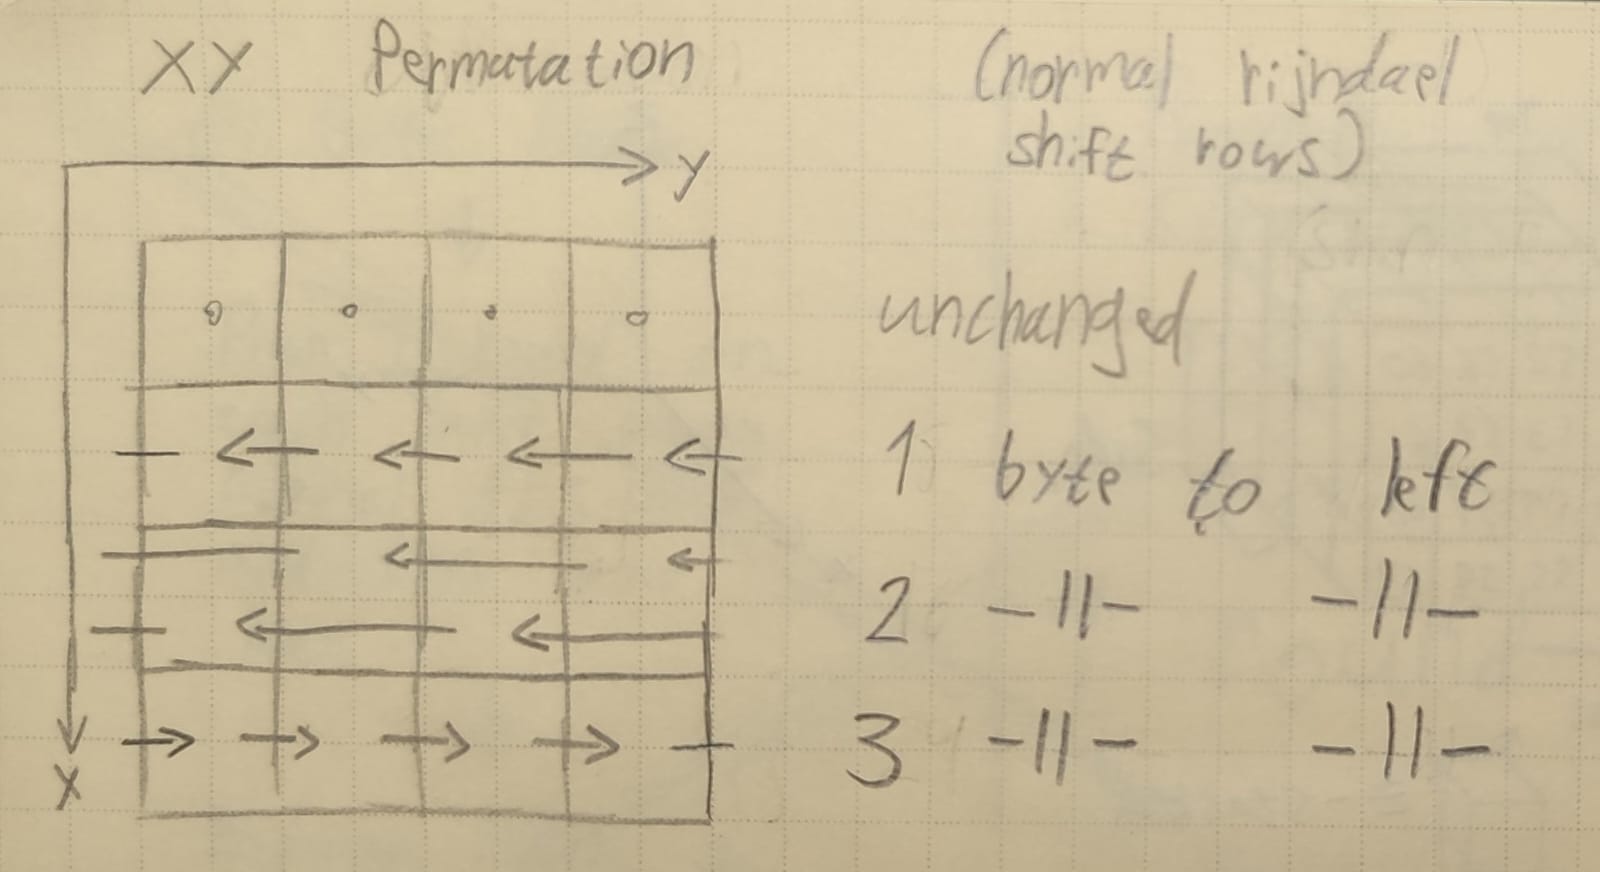 XY Permutation
(normal rijndael
shift rows)
y
unchanged
1 byte to left
2 -||- -||-
3 -||- -||-
x